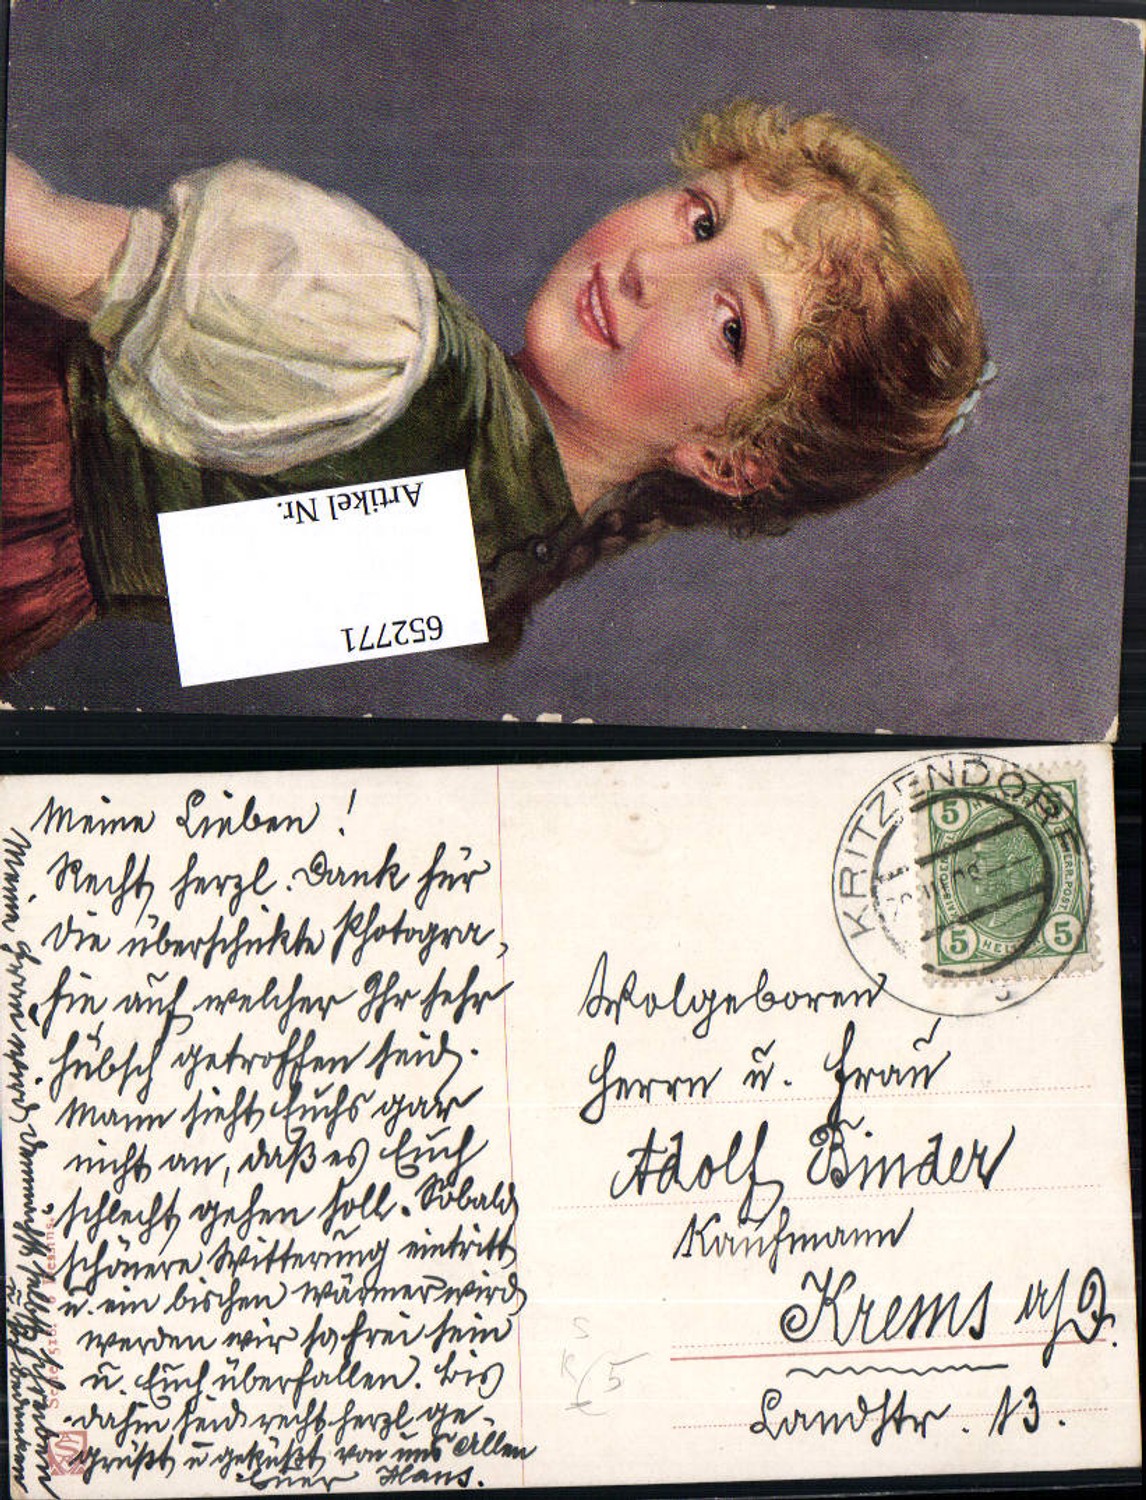 Artikel Nr.
652771
Meine Lieben!
Recht herzl. Dank für
die überschickte Photogra-
fie auf welcher Ihr sehr
hübsch getroffen seid.
Mann sieht Euchs gar
nicht an, daß es Euch
schlecht gehen soll. Sobald
schönere Witterung eintritt
u. ein bischen wärmer wird
werden wir so frei sein
u. Euch überfallen. Bis
dahin seid recht herzl ge-
grüßt u geküßt von uns Allen
Euer Hans.
Meine wird demnächst selbst schreiben
u. bedanken
KRITZENDORF
5 5
HELLER
5 5
Wolgeboren
Herrn u. Frau
Adolf Binder
Kaufmann
Krems a/D.
Landstr. 13.
5